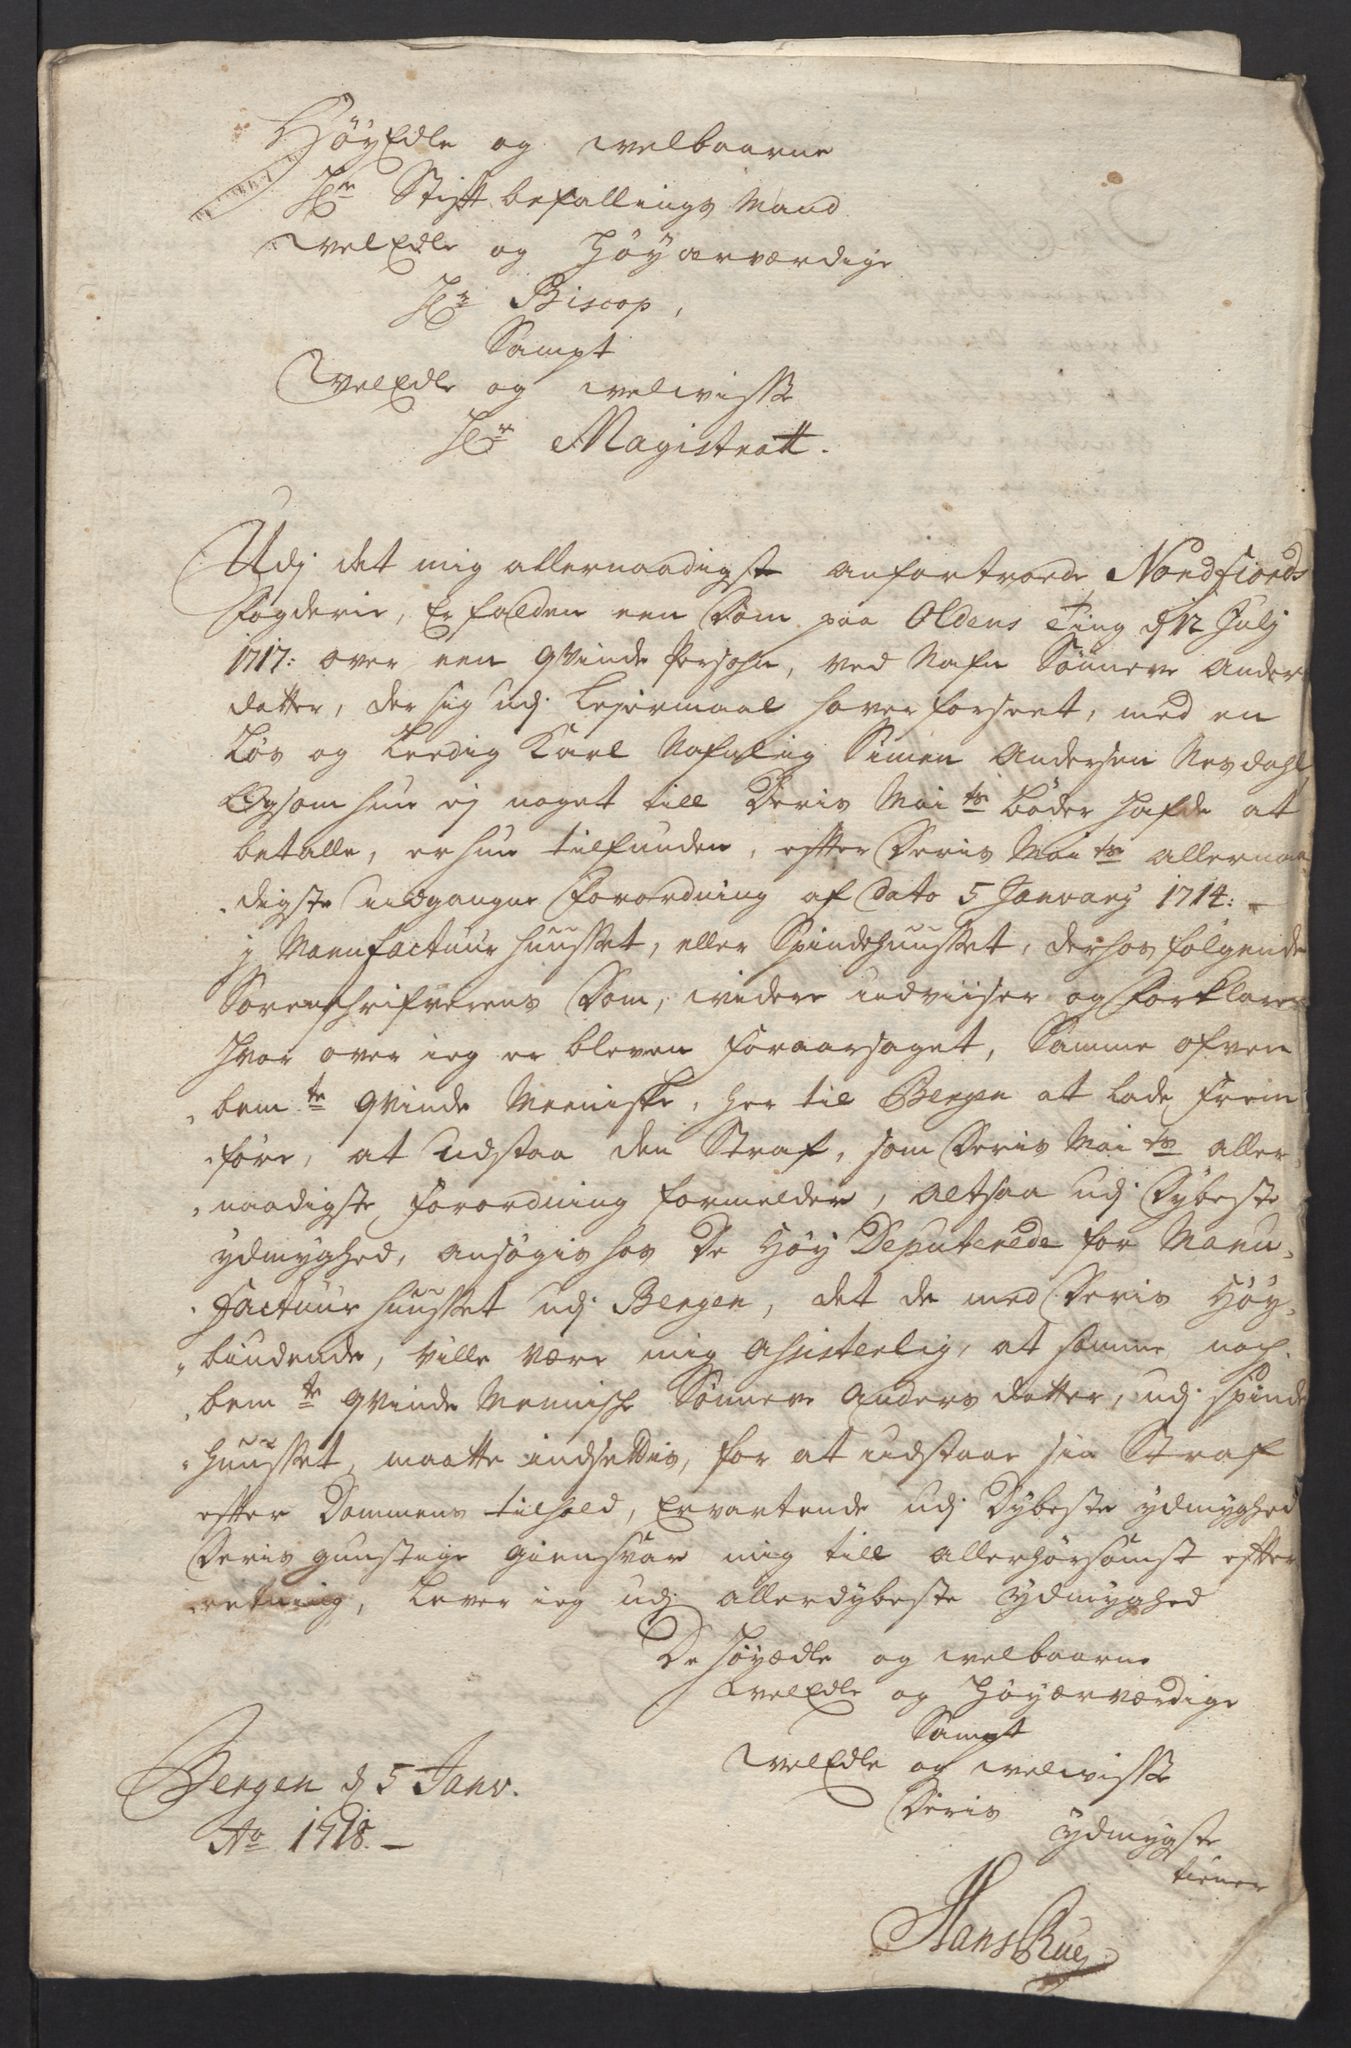 HöyEdle og welbaarne
Hr Stift befallings Mand
WelEdle og Höyærværdige
Hr Biscop,
Sampt
WelEdle og welvisse
Hr Magistratt.
Udj det mig allernaadigst anfortroede Nordfiords
Fogderie, Er falden een Dom paa Oldens Ting d 12 Julj
1717: over een qvinde Persohn, ved Nafn Sönneve Anders
datter, der sig udj Lejermaal haver forseet, med en
Løs og Leedig Karl Nafnlig Simen Andersen Nesdahl,
Og som hun ej noget till Deris Maits Böder hafde at
betalle, er hun tilfunden, effter Deris Maits allernaa
digste udgangne Forordning af Dato 5 January 1714: -
j Manufactuur huusset, eller Spindehuusset, derhos følgende
Sorenschrifverens Dom, videre udviiser og Forklarer
hvor over ieg er bleven foraarsaget, Samme ofven
bemte qvinde Menniske, her til Bergen at lade frem
före, at udstaa den Straf, som Deris Maits aller
naadigste Forordning formelder, altsaa udj Dybeste
ydmyghed, ansøgis hos De Høy Deputerede for Manu
Factuur huusset udj Bergen, det de med Deris Høy
biudende, ville være mig assisterlig, at samme noch
bemte qvinde Mennische Sönneve Anders datter, udj spinde
huusset, maatte indsettis, for at udstaae sin Straf
effter Dommens tilhold, Ervartende udj Dybeste ydmyghed
Deris gunstige giensvar mig till allerhørsomst effter
retning, Lever ieg udj allerdybeste ydmyghed
De Høyædle og welbaarne
WelEdle og Høyærværdige
Sampt
WelEdle og welvisse
Deris ydmygste
tiener
Bergen d 5 Janv.
Ao 1718. -
Hans Rue